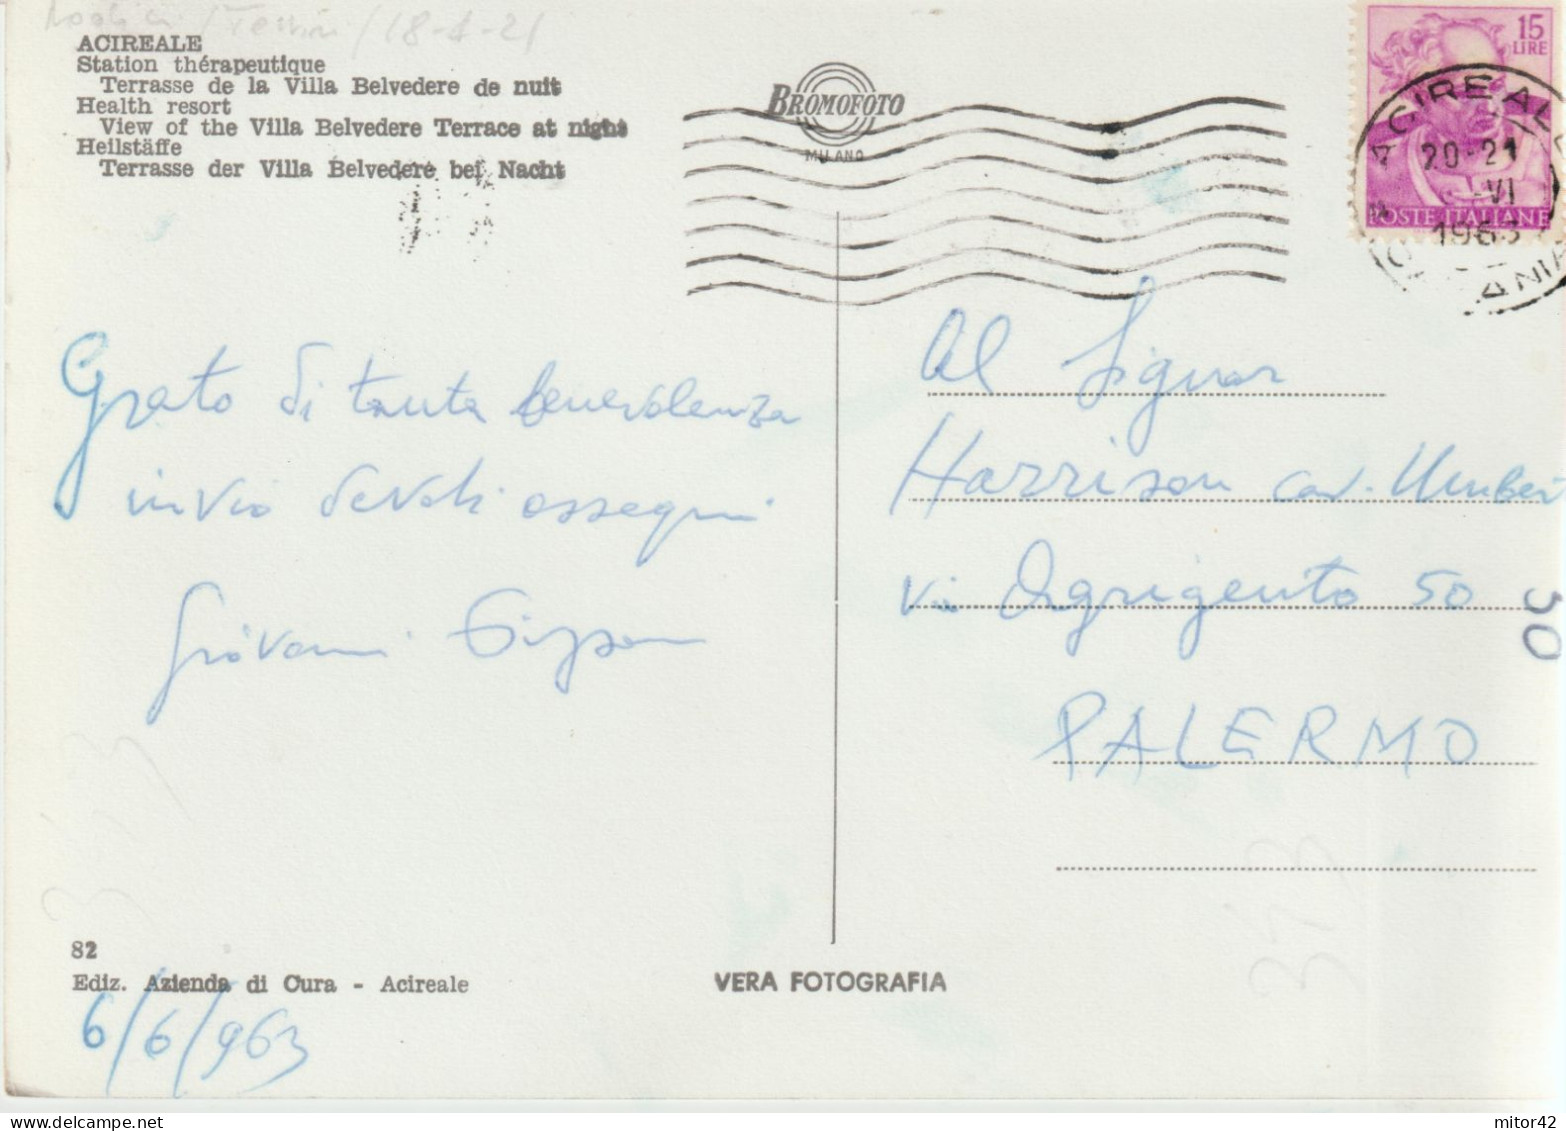 ACIREALE
Station thérapeutique
Terrasse de la Villa Belvedere de nuit
Health resort
View of the Villa Belvedere Terrace at night
Heilstäffe
Terrasse der Villa Belvedere bei Nacht
BROMOFOTO
MILANO
15
LIRE
POSTE ITALIANE
ACIREALE
20-21
VI
1963
Grato di tanta benevolenza
invio devoti ossequi
Giovanni
Al Signor
Harrison cav. Umber
via Agrigento 50
30
PALERMO
313
82
Ediz. Azienda di Cura - Acireale
VERA FOTOGRAFIA
6/6/963
mitor42